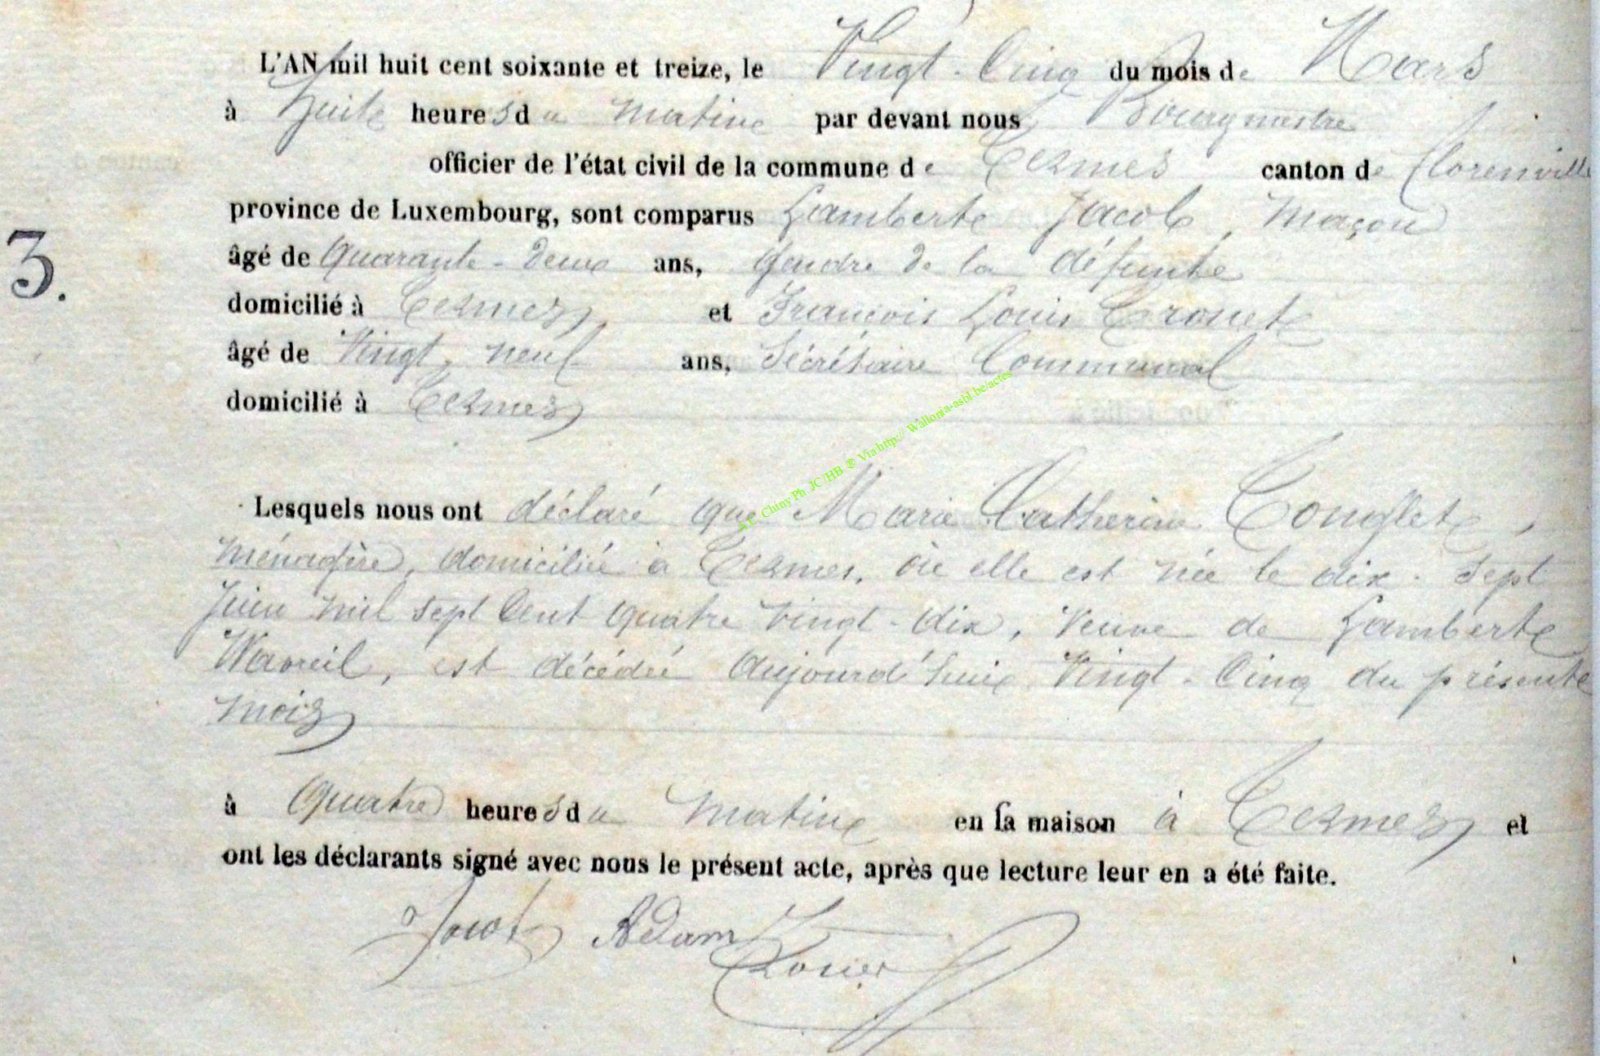 L'AN mil huit cent soixante et treize, le Vingt-Cinq du mois de Mars
à huit heures du matin par devant nous Bourgmestre
officier de l'état civil de la commune de Termes canton de Florenville
province de Luxembourg, sont comparus Lambert Jacob, Maçon
3.
âgé de Quarante-deux ans, gendre de la défunte
domicilié à Termes et François Louis
âgé de Vingt-neuf ans, Sécrétaire Communal
domicilié à Termes
Lesquels nous ont déclaré que Marie Catherine Conglet,
Ménagère, domiciliée à Termes, où elle est née le dix-sept
Juin mil sept Cent quatre vingt-dix, Veuve de Lambert
Wavreil, est décédée aujourd'hui Vingt-Cinq du présent
mois
à Quatre heures du matin en sa maison à Termes et
ont les déclarants signé avec nous le présent acte, après que lecture leur en a été faite.
Jacob Adam